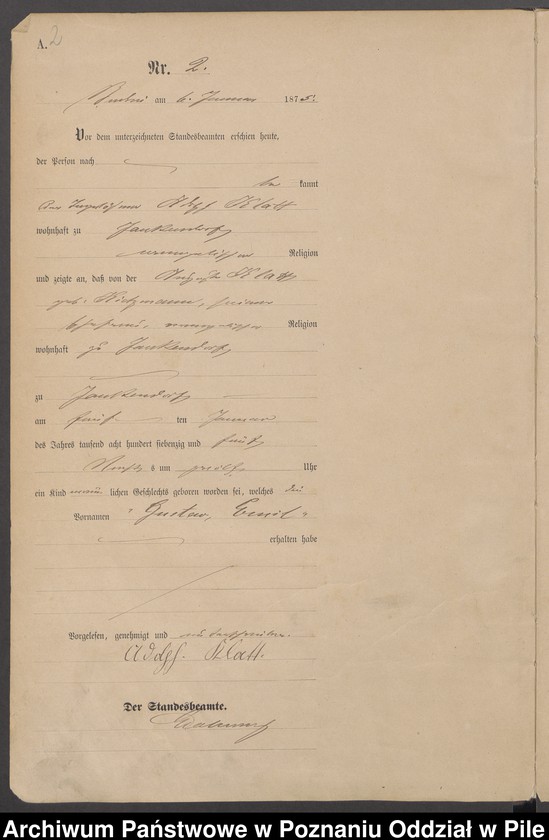 A. 2
Nr. 2.
am 6. Januar 1875.
Vor dem unterzeichneten Standesbeamten erschien heute,
der Person nach
be kannt
der Adolf Klatt
wohnhaft zu Jankendorf
evangelischer Religion
und zeigte an, daß von der Auguste Klatt
geb. seiner
Ehefrau, evangelischer Religion
wohnhaft zu Jankendorf
zu Jankendorf
am fünf ten Januar
des Jahres tausend acht hundert siebenzig und fünf
Nachts um zwölf Uhr
ein Kind männ lichen Geschlechts geboren worden sei, welches den
Vornamen "Gustav, Emil"
erhalten habe
Vorgelesen, genehmigt und unterschrieben.
Adolf Klatt.
Der Standesbeamte.
Archiwum Państwowe w Poznaniu Oddział w Pile